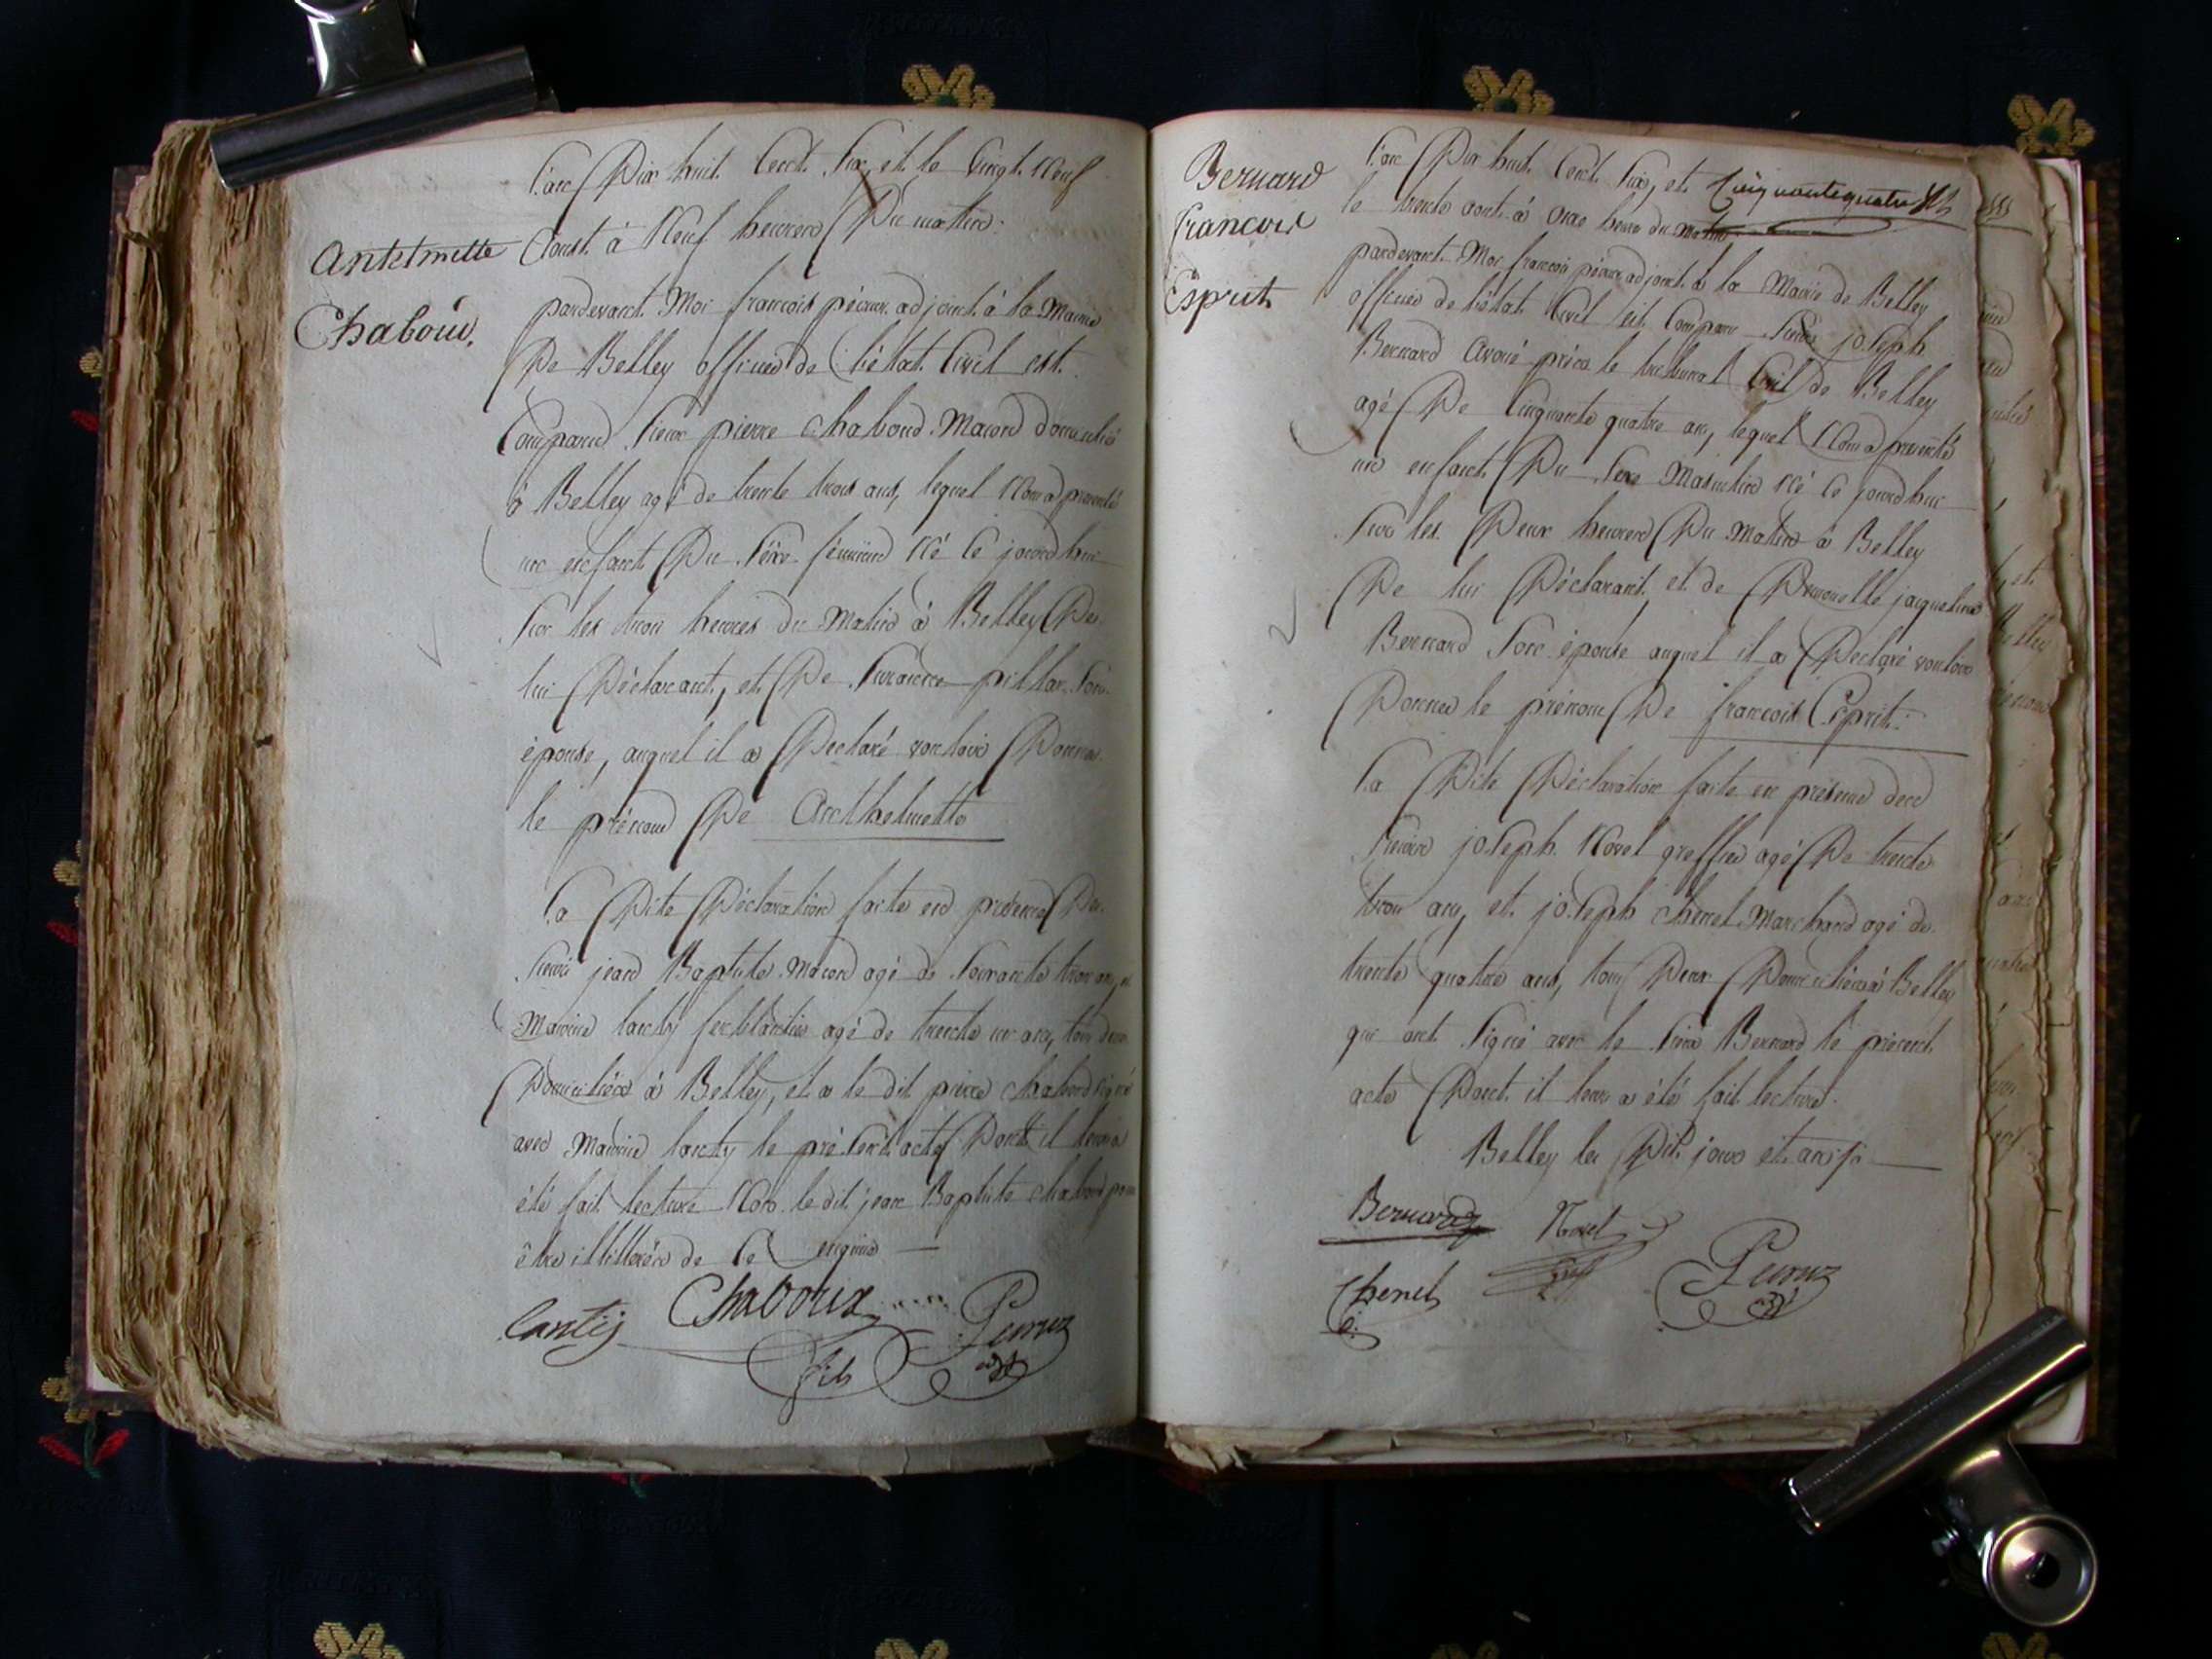 L'an Dix huit Cent Six, et le Vingt Neuf
Aoust à Neuf heures Du matin:
Anthelmette
Chaboud,
pardevant Moi francois adjoint à la Mairie
De Belley officier de l'état Civil est
Comparu Sieur pierre Chaboud Macon domicilié
à Belley agé de trente trois ans, lequel Nous a presenté
un enfant Du Sexe féminin Né Ce jourd'hui
Sur les trois heures du Matin à Belley De
lui Déclarant, et De pillax Son
épouse, auquel il a Declaré vouloir Donner
le prénom De Anthelmette
La Dite Déclaration faite en presence De
Sieurs jean Baptiste Macon agé de Soixante trois ans, et
Maurice lanty ferblantier agé de trente un ans, tous deux
Domiciliés à Belley, et a le dit pierre Chaboud Signé
avec Maurice lanty le présent acte Dont il leur a
été fait lecture Non le dit jean Baptiste Chaboud pour
être illitteré de Ce enquis
Lantij Chaboux
fils
Bernard
francois
Esprit
L'an Dix huit Cent Six, et
le trente aout à onze heure du matin
pardevant Moi francois adjoint à la Mairie de Belley
officier de l'état Civil est Comparu Sieur joseph
Bernard Avoué près le tribunal Civil de Belley
agé De Cinquante quatre ans, lequel Nous a presenté
un enfant Du Sexe Masculin Né Ce jourd'hui
Sur les Deux heures Du Matin à Belley
De lui Déclarant, et de jacqueline
Bernard Son épouse auquel il a Declaré vouloir
Donner le prénom De francois Esprit:
La Dite Déclaration faite en présence de
Sieurs joseph Novel greffier agé De trente
trois ans, et joseph Chenel Marchand agé de
trente quatre ans, tous Deux Domiciliés à Belley
qui ont Signé avec le Sieur Bernard le présent
acte Dont il leur a été fait lecture.
Belley les Dit jour et an
Bernard Novel
Chenel